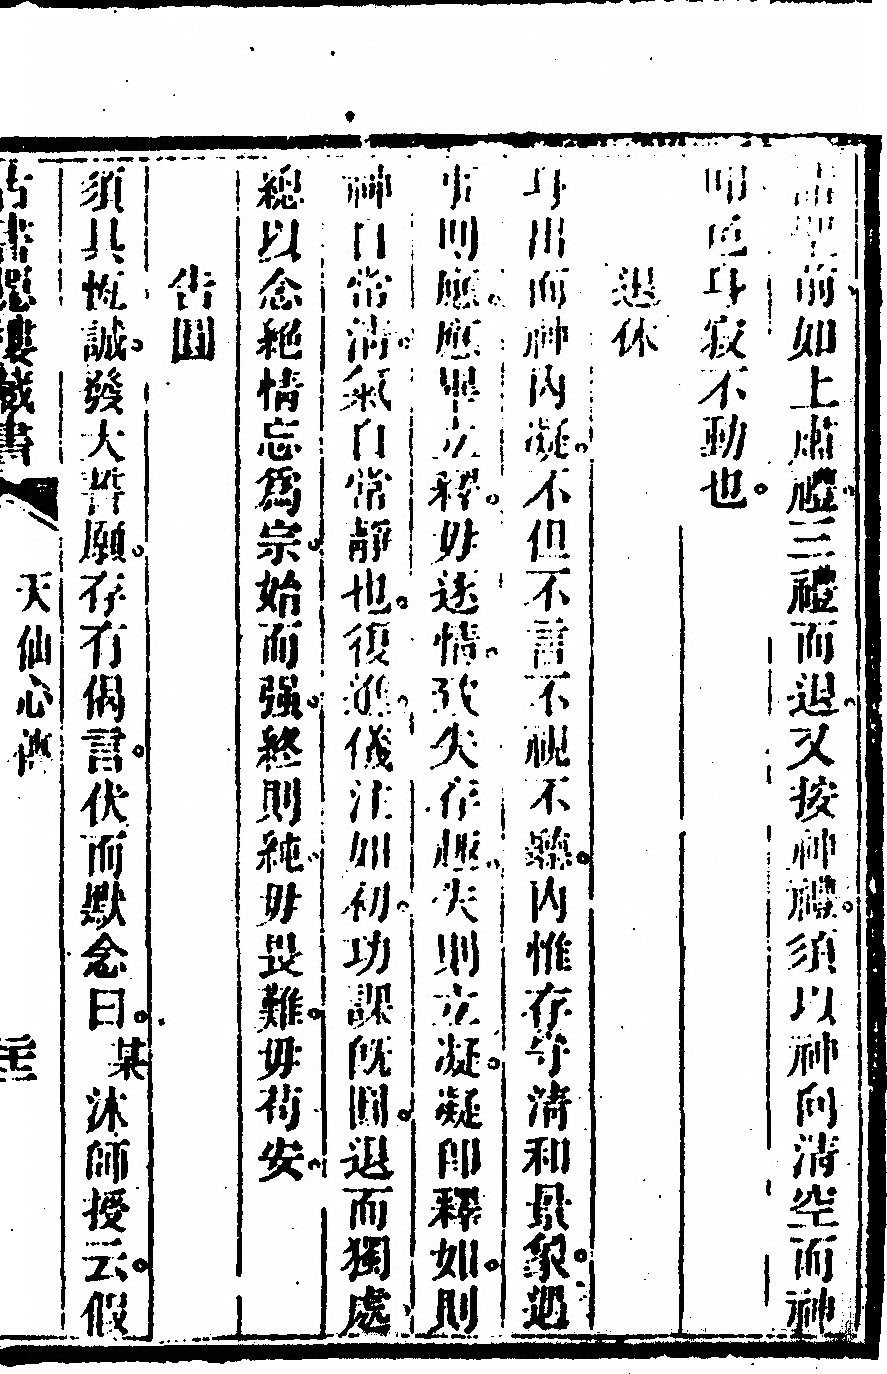 諸聖前如上肅禮三禮而退又按神禮須以神向淸空而神
叩色身寂不動也
退休
身出而神內凝不但不言不視不聽內惟存守淸和景象遇
事則應應畢立釋毋迷情致失存極失則立凝凝卽釋如則
神自常淸氣自常靜也復進儀注如初功課旣圓退而獨處
總以念絕情忘爲宗始而强終則純毋畏難毋苟安
告圓
須具恆誠發大誓願存有偈言伏而默念曰某沐師授云假
古書隱樓藏書
天仙心傳